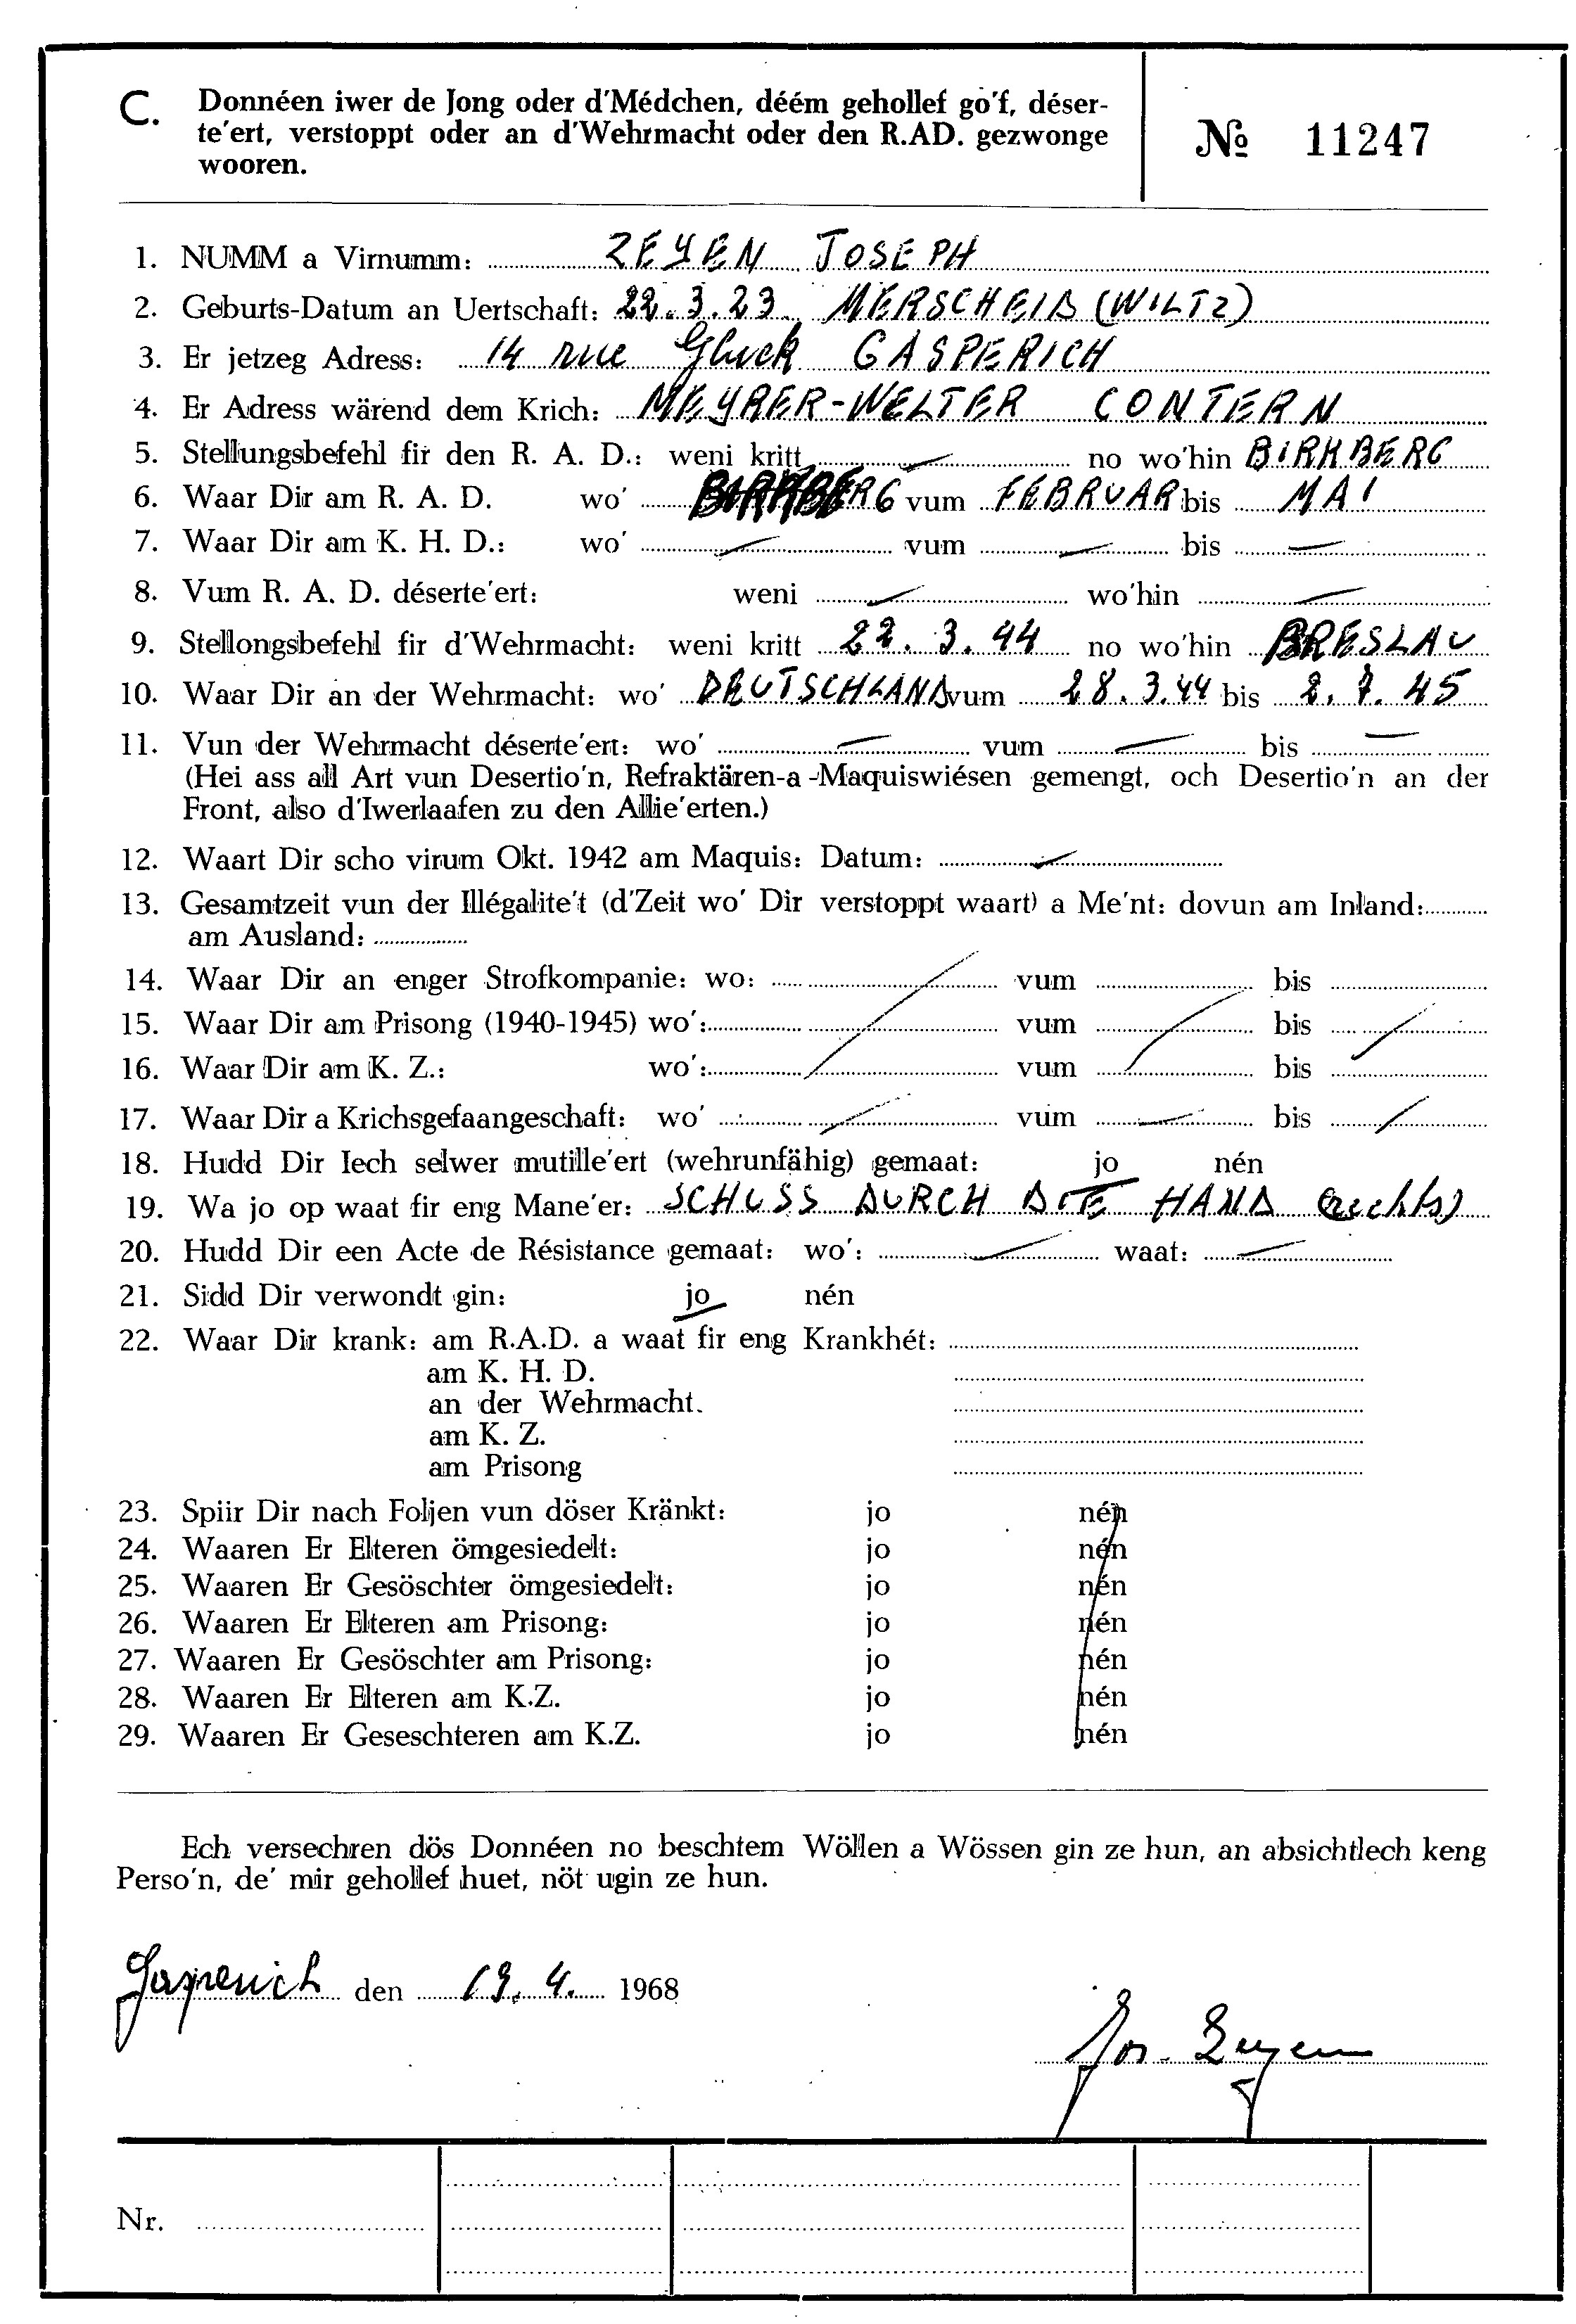 C. Donnéen iwer de Jong oder d'Médchen, déém gehollef go'f, déser-
te'ert, verstoppt oder an d'Wehrmacht oder den R.AD. gezwonge
wooren.
№ 11247
1. NUMM a Virnumm: ZEYEN JOSEPH
2. Geburts-Datum an Uertschaft: 22.3.23. MERSCHEID (WILTZ)
3. Er jetzeg Adress: 14 rue Gluck GASPERICH
4. Er Adress wärend dem Krich: MEYRER-WELTER CONTERN
5. Stellungsbefehl fir den R. A. D.: weni kritt no wo'hin BIRKBERG
6. Waar Dir am R. A. D. wo' BIRKBERG vum FEBRUAR bis MAI
7. Waar Dir am K. H. D.: wo' vum bis
8. Vum R. A. D. déserte'ert: weni wo'hin
9. Stellongsbefehl fir d'Wehrmacht: weni kritt 22.3.44 no wo'hin BRESLAU
10. Waar Dir an der Wehrmacht: wo' DEUTSCHLAND vum 28.3.44 bis 2.7.45
11. Vun der Wehrmacht déserte'ert: wo' vum bis
(Hei ass all Art vun Desertio'n, Refraktären-a -Maquiswiésen gemengt, och Desertio'n an der
Front, also d'Iwerlaafen zu den Allie'erten.)
12. Waart Dir scho virum Okt. 1942 am Maquis: Datum:
13. Gesamtzeit vun der Illégalite't (d'Zeit wo' Dir verstoppt waart) a Me'nt: dovun am Inland:
am Ausland:
14. Waar Dir an enger Strofkompanie: wo: vum bis
15. Waar Dir am Prisong (1940-1945) wo': vum bis
16. Waar Dir am K. Z.: wo': vum bis
17. Waar Dir a Krichsgefaangeschaft: wo' vum bis
18. Hudd Dir Iech selwer mutille'ert (wehrunfähig) gemaat: jo nén
19. Wa jo op waat fir eng Mane'er: SCHUSS DURCH DIE HAND (rechts)
20. Hudd Dir een Acte de Résistance gemaat: wo': waat:
21. Sidd Dir verwondt gin: jo nén
22. Waar Dir krank: am R.A.D. a waat fir eng Krankhét:
am K. H. D.
an der Wehrmacht.
am K. Z.
am Prisong
23. Spiir Dir nach Foljen vun döser Kränkt: jo nén
24. Waaren Er Elteren ömgesiedelt: jo nén
25. Waaren Er Gesöschter ömgesiedelt: jo nén
26. Waaren Er Elteren am Prisong: jo nén
27. Waaren Er Gesöschter am Prisong: jo nén
28. Waaren Er Elteren am K.Z. jo nén
29. Waaren Er Geseschteren am K.Z. jo nén
Ech versechren dös Donnéen no beschtem Wöllen a Wössen gin ze hun, an absichtlech keng
Perso'n, de' mir gehollef huet, nöt ugin ze hun.
Gasperich den 19.4. 1968
Jos. Zeyen
Nr.